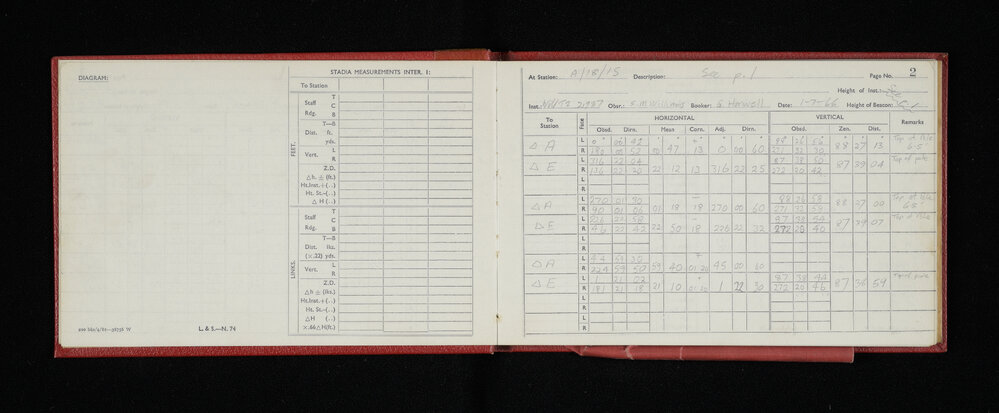 DIAGRAM:
STADIA MEASUREMENTS INTER. 1:
To Station
FEET.
Staff T
Rdg. C
B
T—B
Dist. ft.
yds.
Vert. L
R
Z.D.
△h ± (ft.)
Ht.Inst.+(..)
Ht. St.—(..)
△ H (..)
LINKS.
Staff T
Rdg. C
B
T—B
Dist. lks.
(×.22) yds.
Vert. L
R
△h ± (lks.)
Ht.Inst.+(..)
Ht. St.—(..)
△H (..)
×.66△H(ft.)
L. & S.—N. 74
At Station: A/18/15 Description: See p.1 Page No. 2
Height of Inst.:
Inst.: Obsr.: Booker: Date: 1-7-66 Height of Beacon:
To Station Face HORIZONTAL VERTICAL Remarks
Obsd. Dirn. Mean Corn. Adj. Dirn. Obsd. Zen. Dist.
△ A L 0 06 42
R 180 00 52 00 47 13 0 00 60 271 32 30 88 27 13 Top of Pole 6.5
△ E L 316 22 04 87 38 50
R 136 22 20 22 12 13 316 22 25 272 20 42 87 39 04 Top of pole
L
R
△ A L 270 01 30 88 26 58 Top of Pole
R 90 01 06 01 18 18 270 00 60 271 32 59 88 27 00 6.5
△ E L 226 87 38 Top of Pole
R 46 22 42 22 50 18 226 22 32 272 20 40 87 39 07
L
R
△ A L 44 59 30
R 224 59 50 59 40 01 20 45 00 60
△ E L 1 21 02 87 38 44 Top of pole
R 181 21 18 21 10 01 20 1 22 30 272 20 46 87 38 59
L
R
L
R